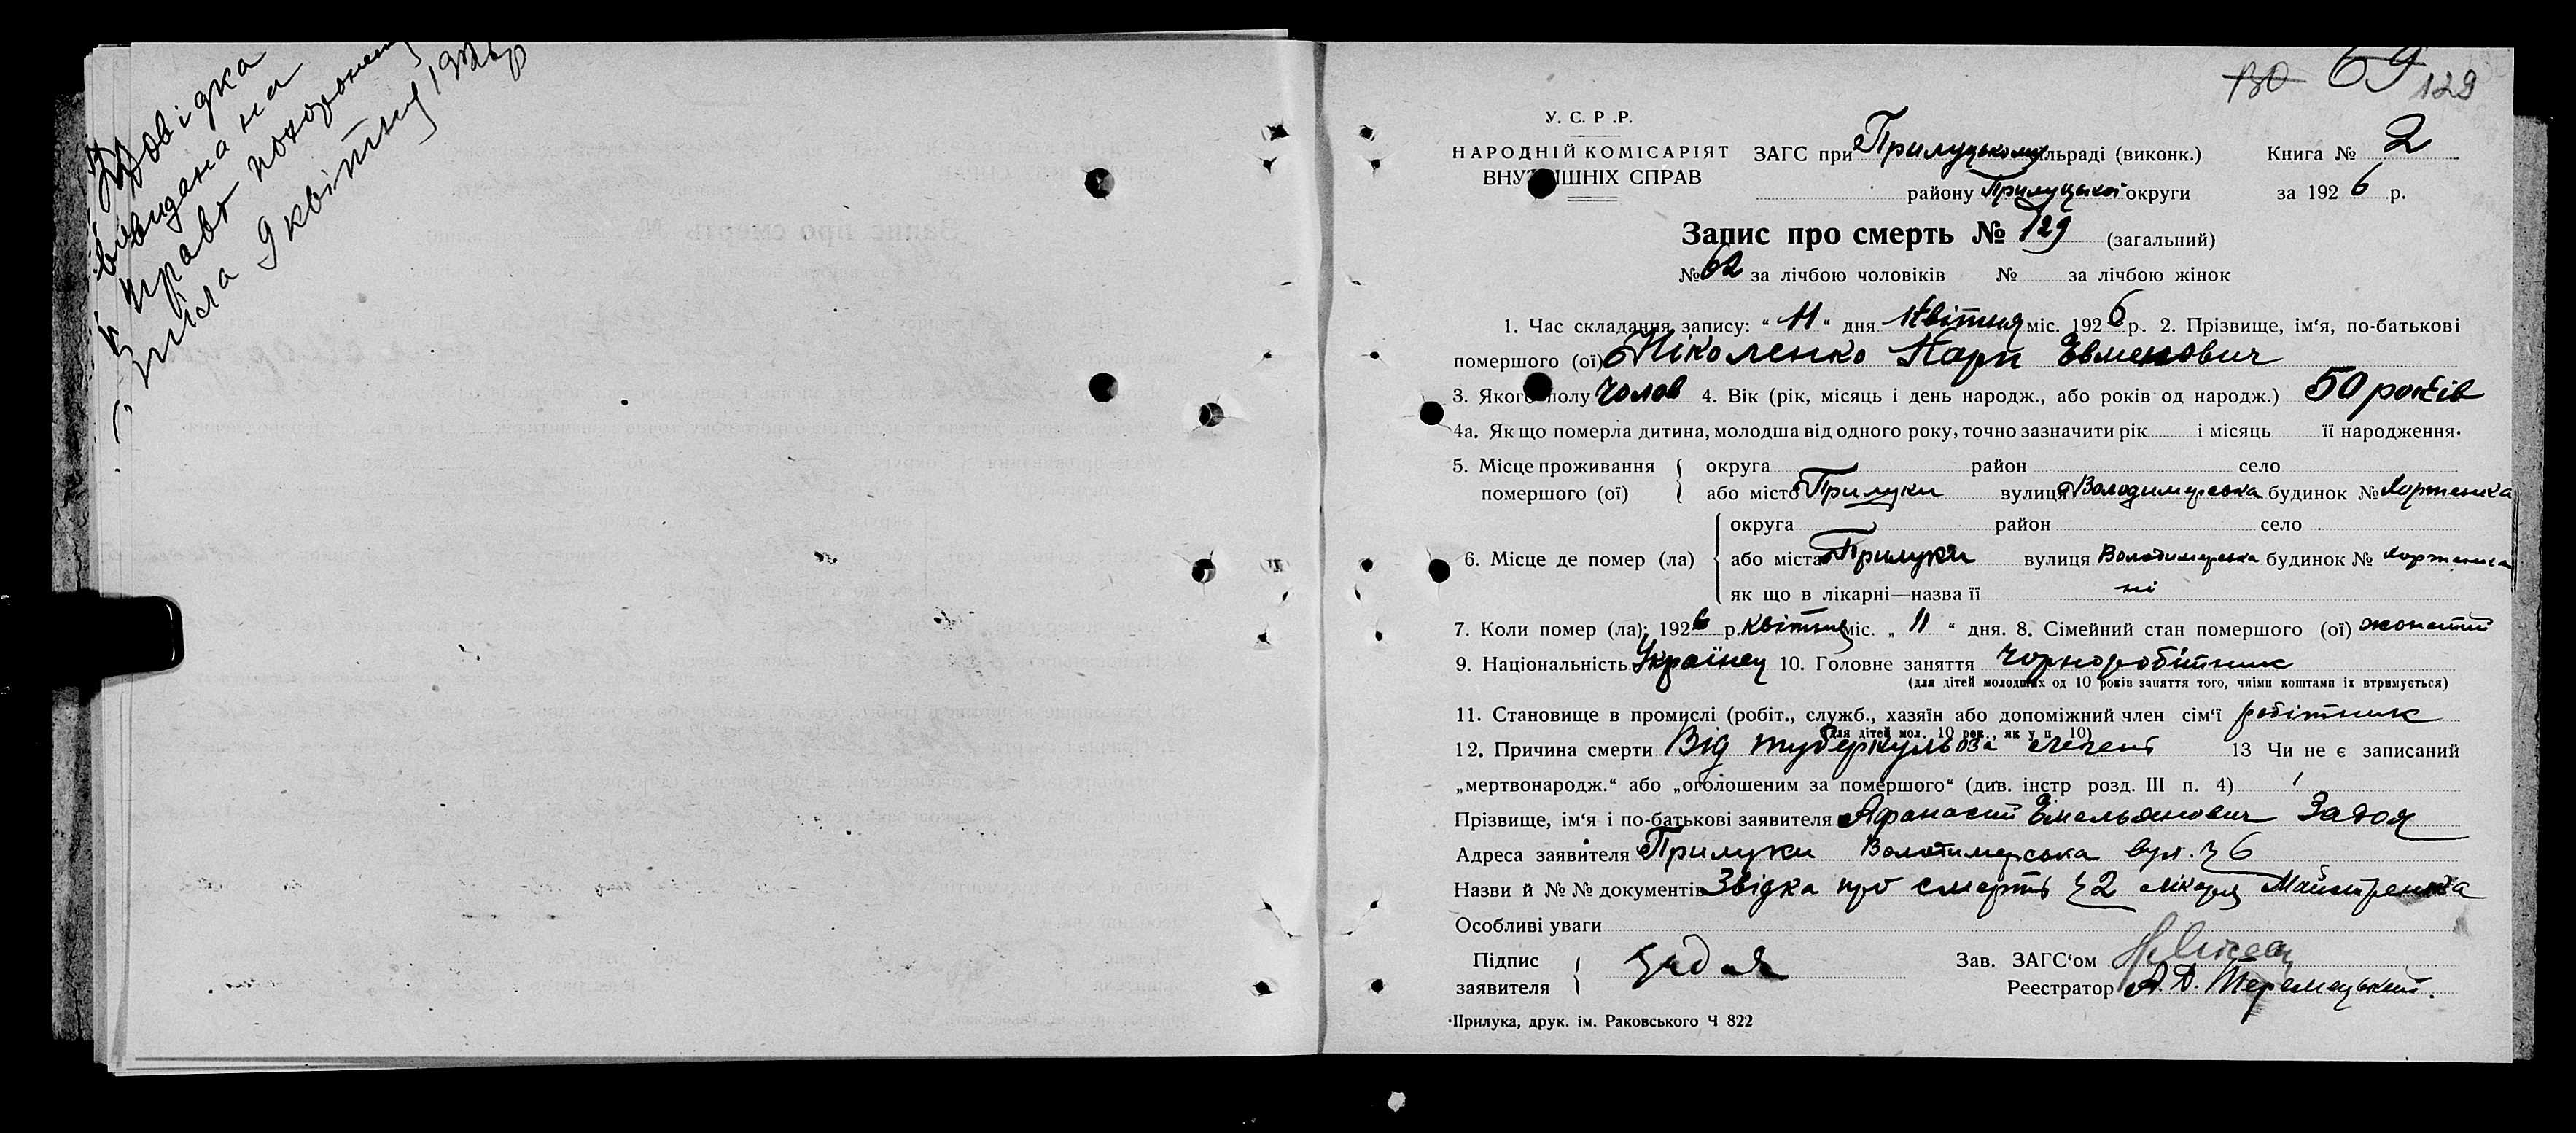 Довідка
видана на
право похоронення
числа 9 квітня 1926 р
130 69 129
У. С. Р. Р.
НАРОДНІЙ КОМІСАРІЯТ
ВНУТРІШНІХ СПРАВ
ЗАГС при Прилуцькому ільраді (виконк.) Книга № 2
району Прилуцької округи за 1926 р.
Запис про смерть № 129 (загальний)
№ 62 за лічбою чоловіків № за лічбою жінок
1. Час складання запису: “ 11 “ дня Квітня міс. 1926 р. 2. Прізвище, ім‘я, по-батькові
помершого (ої) Ніколенко Карп Евменович
3. Якого полу Чолов 4. Вік (рік, місяць і день народж., або років од народж.) 50 років
4а. Як що померла дитина, молодша від одного року, точно зазначити рік і місяць її народження.
5. Місце проживання помершого (ої) { округа район село
або місто Прилуки вулиця Володимерська будинок № Корженка
6. Місце де помер (ла) { округа район село
або міста Прилуки вулиця Володимерська будинок № Корженка
як що в лікарні—назва її ні
7. Коли помер (ла): 1926 р. Квітня міс. „ 11 “ дня. 8. Сімейний стан помершого (ої) жонатий
9. Національність Українец 10. Головне заняття Чорноробітник
(для дітей молодших од 10 років заняття того, чиїми коштами їх втримується)
11. Становище в промислі (робіт., служб., хазяїн або допоміжний член сім‘ї робітник
(для дітей мол. 10 рок., як у п. 10)
12. Причина смерти Від туберкульоза легенів 13 Чи не є записаний
„мертвонародж.“ або „оголошеним за помершого“ (див. інстр розд. III п. 4)
Прізвище, ім‘я і по-батькові заявителя Афанасий Емельянович Задоя
Адреса заявителя Прилуки Володимерська вул. ч 6
Назви й №№ документів Звідка про смерть ч 2 лікаря Майстренка
Особливі уваги
Підпис заявителя { Задоя
Зав. ЗАГС‘ом
Реестратор А. Д. Теремецький.
Прилука, друк. ім. Раковського Ч 822